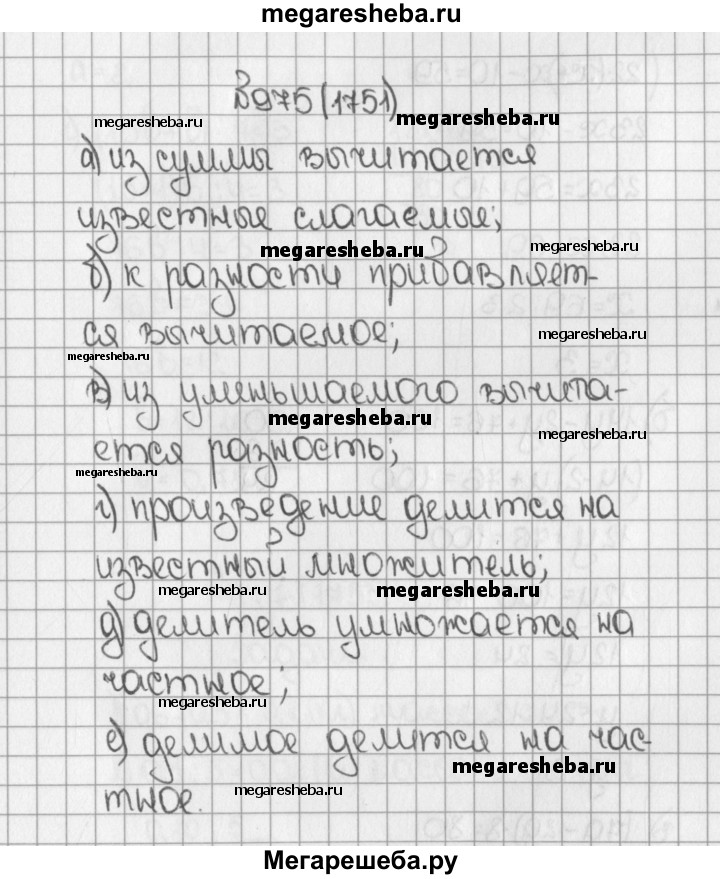 megaresheba.ru
№975 (1751)
megaresheba.ru megaresheba.ru
а) из суммы вычитается
известные слагаемые;
megaresheba.ru megaresheba.ru
б) к разности прибавляет-
ся вычитаемое; megaresheba.ru
megaresheba.ru
в) из уменьшаемого вычита-
megaresheba.ru megaresheba.ru
ется разность;
megaresheba.ru
г) произведение делится на
известный множитель;
megaresheba.ru megaresheba.ru
д) делитель умножается на
частное;
megaresheba.ru
е) делимое делится на час-
megaresheba.ru
тное. megaresheba.ru
Мегарешеба.ру